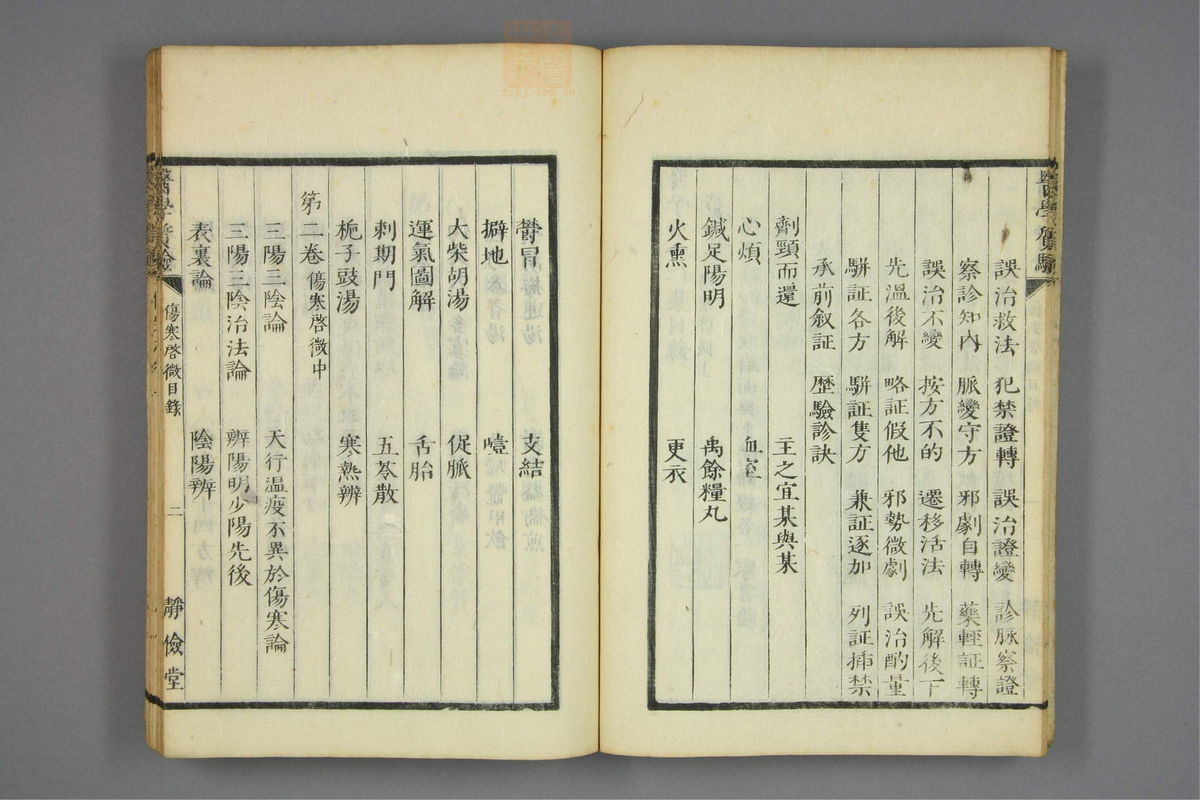 誤治救法 犯禁證轉 誤治證變 診脉察證
察診知内 脈變守方 邪劇自轉 藥輕証轉
誤治不變 按方不的 遷移活法 先解後下
先溫後解 略証假他 邪勢微劇 誤治酌量
駢証各方 駢証隻方 兼証逐加 列証揷禁
承前叙証 歷驗診訣
劑頸而還 主之宜某與某
心煩 血室
鍼足陽明 禹餘糧丸
火熏 更衣
鬱冒 支結
擗地 噎
大柴胡湯 促脈
運氣圖解 舌胎
刺期門 五苓散
梔子豉湯 寒熱辨
第二卷 傷寒啓微中
三陽三陰論 天行溫疫不異於傷寒論
三陽三陰治法論 辨陽明少陽先後
表裏論 陰陽辨
傷寒啓微目錄 二 靜儉堂
zysj.com.cn